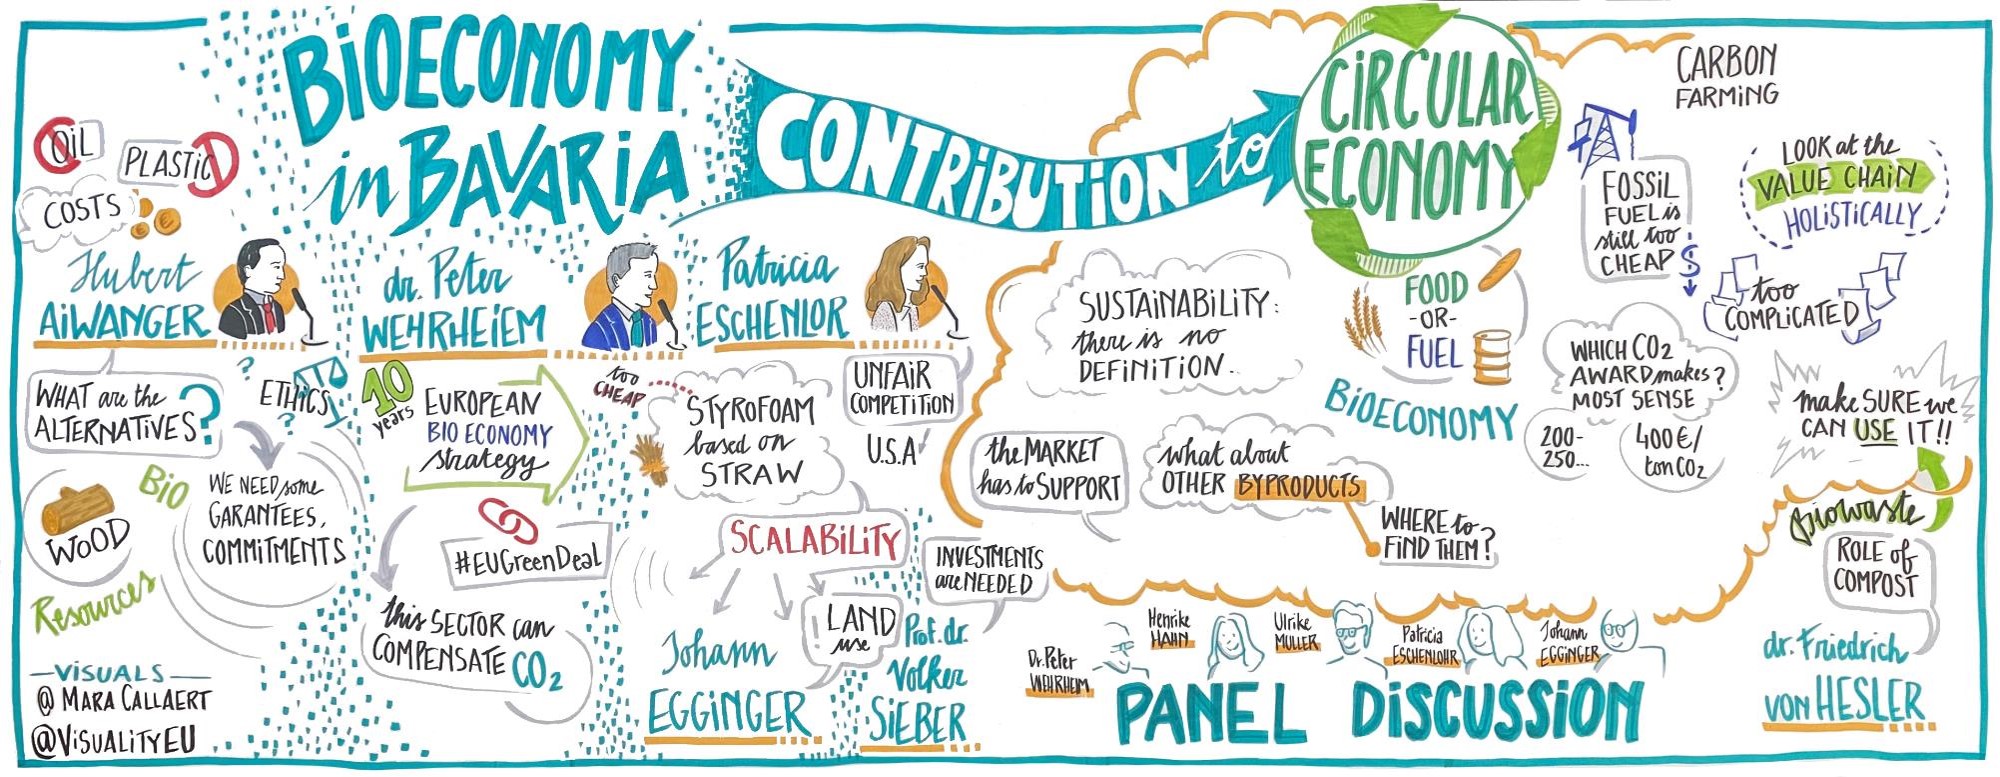 BiOECONOMY
in BAVARiA
CONTRiBUTiON to
CiRCULAR
ECONOMY
OiL
PLASTiC
COSTS
Hubert
AiWANGER
WHAT are the
ALTERNATiVES?
ETHiCS
WE NEED some
GARANTEES,
COMMiTMENTS
WOOD
BiO
Resources
—ViSUALS—
@ MARA CALLAERT
@ViSUALiTYEU
dr. Peter
WEHRHEiEM
10
years
EUROPEAN
BIO ECONOMY
strategy
#EUGreenDeal
this SECTOR can
COMPENSATE CO2
Patricia
ESCHENLOR
too
CHEAP
STYROFOAM
based on
STRAW
UNFAiR
COMPETiTiON
U.S.A
SCALABiLiTY
LAND
use
Johann
EGGiNGER
INVESTMENTS
are NEEDED
Prof. dr.
Volker
SiEBER
SUSTAiNABiLiTY:
there is no
DEFiNiTiON.
the MARKET
has to SUPPORT
what about
OTHER BYPRODUCTS
WHERE to
FiND THEM?
FOOD
-OR-
FUEL
BiOECONOMY
FOSSiL
FUEL is
still too
CHEAP
$
CARBON
FARMiNG
LOOK at the
VALUE CHAiN
HOLiSTiCALLY
too
COMPLiCATED
WHICH CO2
AWARD makes?
MOST SENSE
200-
250...
400€/
ton CO2
make SURE we
CAN USE IT!!
Biowaste
ROLE of
COMPOST
dr. Friedrich
von HESLER
Dr. Peter
WEHRHEIM
Henrike
HAHN
Ulrike
MULLER
Patricia
ESCHENLOHR
Johann
EGGINGER
PANEL DiSCUSSiON